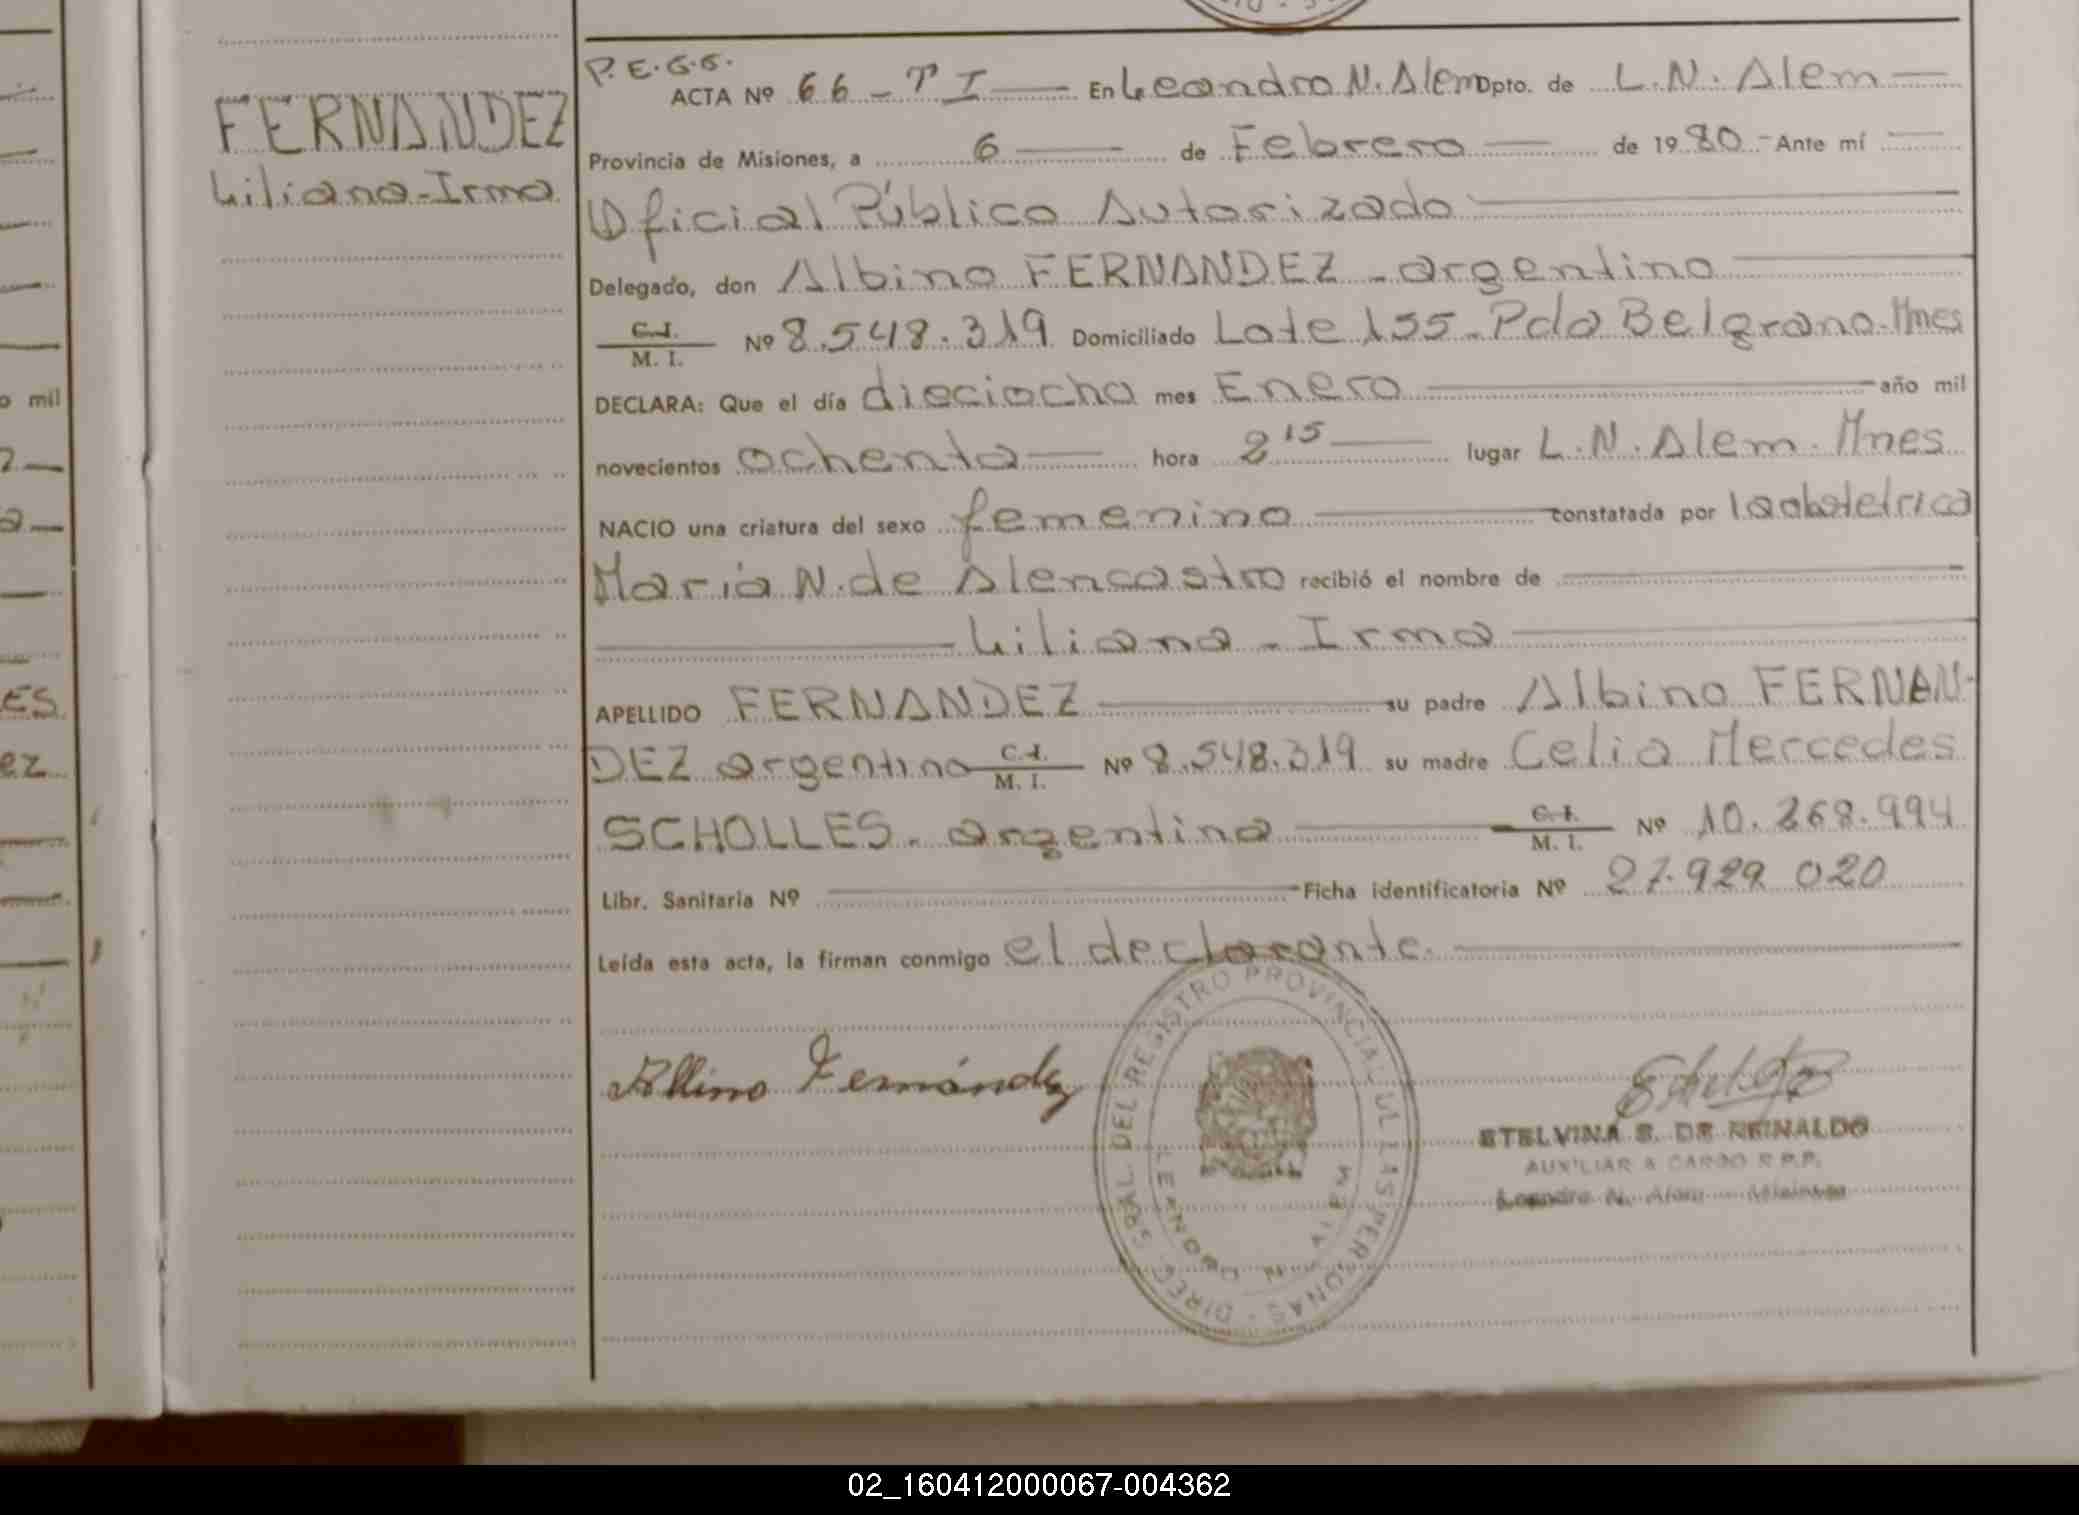 FERNANDEZ
Liliana-Irma
P.E.G.G.
ACTA Nº 66 - T I En Leandro N. Alem Dpto. de L.N. Alem
Provincia de Misiones, a 6 de Febrero de 1980 - Ante mí
Oficial Público Autorizado
Delegado, don Albino FERNANDEZ - argentino
C.I.
M. I. Nº 8.548.319 Domiciliado Lote 155 - Pdo Belgrano - Mnes
DECLARA: Que el día dieciocho mes Enero año mil
novecientos ochenta hora 2 15 lugar L.N. Alem - Mnes
NACIO una criatura del sexo femenino constatada por la obstetrica
Maria N. de Alencastro recibió el nombre de
Liliana - Irma
APELLIDO FERNANDEZ su padre Albino FERNAN-
DEZ argentino C.I. M. I. Nº 8.548.319 su madre Celia Mercedes
SCHOLLES - argentina C.I. M. I. Nº 10.268.994
Libr. Sanitaria Nº Ficha identificatoria Nº 27.929 020
Leída esta acta, la firman conmigo el declarante.
Albino Fernández
DIREC. GRAL. DEL REGISTRO PROVINCIAL DE LAS PERSONAS
LEANDRO N. ALEM
ETELVINA S. DE REINALDO
AUXILIAR A CARGO R.P.P.
Leandro N. Alem - Misiones
o mil
ES
ez
02_160412000067-004362